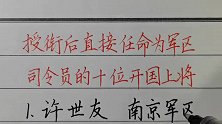 授衔后直接任命为军区
司令员的十位开国上将
1. 许世友 南京军区